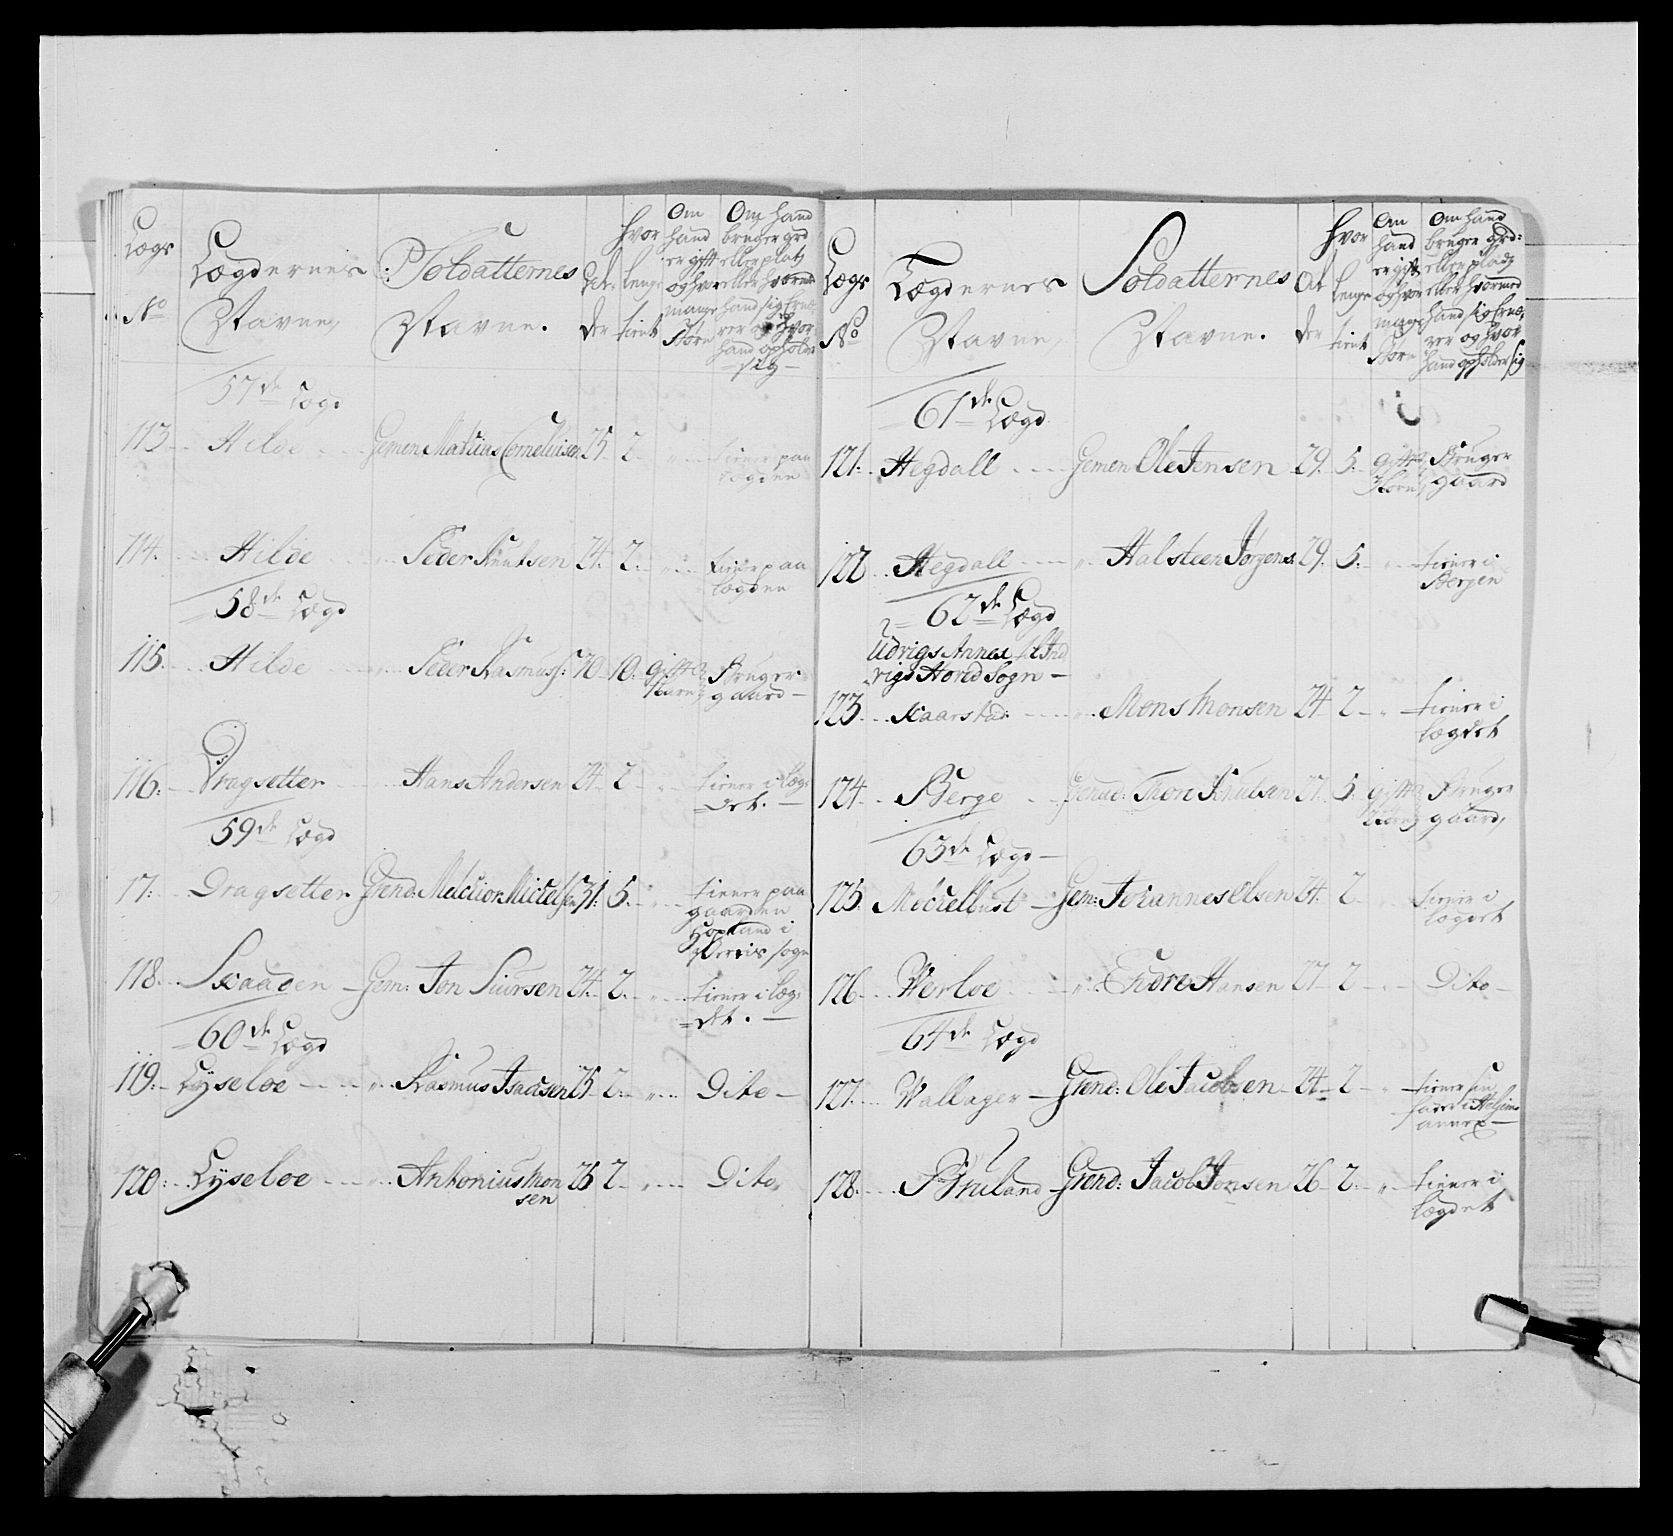 Lægs
No
Lægdernes
Navne,
Soldatternes
Navne.
Al-
der
hvor
lenge
tient
Om
hand
er gift
og hvor
mange
Børn
Om hand
bruger grd
eller plats
eller hvormed
hand sig Ernæ-
rer og hvor
hand opholder
sig
57de Lægd
113. Hilde Gemen Mathias Corneliusen 25 2. tiener paa
lægden
114. Hilde " Peder Knutsen 24. 2. " tiener paa
lægden
58de Lægd
115. Hilde " Peder Rasmuss: 70 10. gift Bruger
Børn gaard
116. Dragsetter Hans Andersen 24 2 " tiener i Læg-
det.
59de Lægd
17: Dragsetter Grend: Melchior Michelsen 31. 5. " tiener paa
gaarden
Hopland i
sogn
118. Skaaden Gem: Jon Siursen 24. 2. " tiener i Læg-
det.
60de Lægd
119. Lyseloe " Rasmus Isacsen 25 2. " Dito
120. Lyseloe " Antonius Mon
sen 25 2. " Dito,
Lægs
No
Lægdernes
Navne,
Soldatternes
Navne.
Al
der
hvor
lenge
tient
Om
hand
er gift
og hvor
mange
Børn
Om hand
bruger grd:
eller plads
eller hvormed
hand sig Ernæ-
rer og hvor
hand opholder sig
61de Lægd
121. Hegdall Gemen Ole Jensen 29. 5. gift Bruger
Børn gaard
122 Hegdall " Halsteen Jørgens. 29. 5. " tiener i
Bergen
62de Lægd
Udrigs Annex til Ind
rigs Hored Sogn
123. Kaarstad " Mons Monsen 24 2 " tiener i
lægdet
124. Berge Grenad: Thore Knutsen 27. 5. gift Bruger
Børn gaard,
63de Lægd
125. Mechelbust Gem: Johannes Olsen 24. 2. tiener i
lægdet
126. Werloe " Endre Hansen 27 2 " Dito
64de Lægd
127. Wallager Grend: Ole Jacobsen 24 2 " tiener sin
fader i
annex
128. Bruland Grend: Jacob Jonsen 26 2. " tiener i
Lægdet